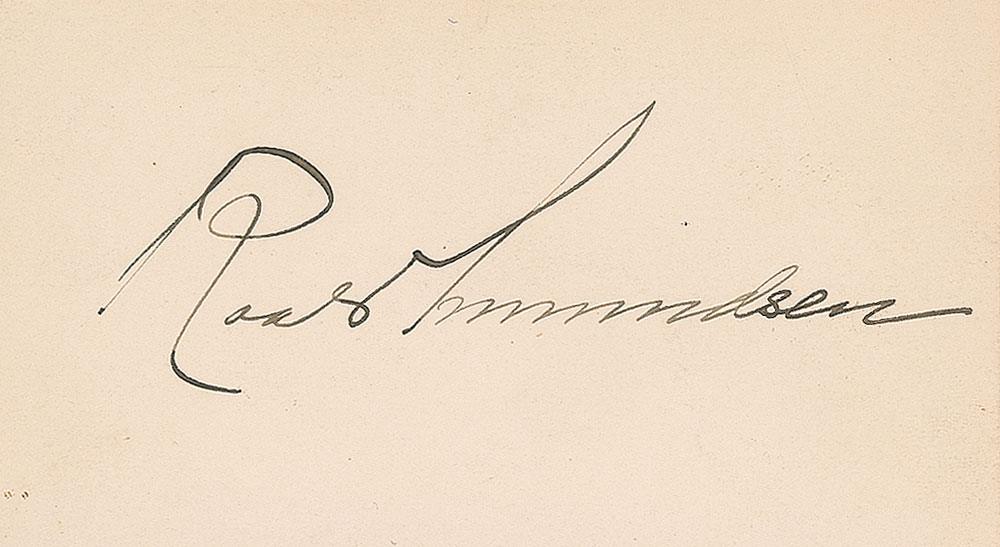 Roald Amundsen